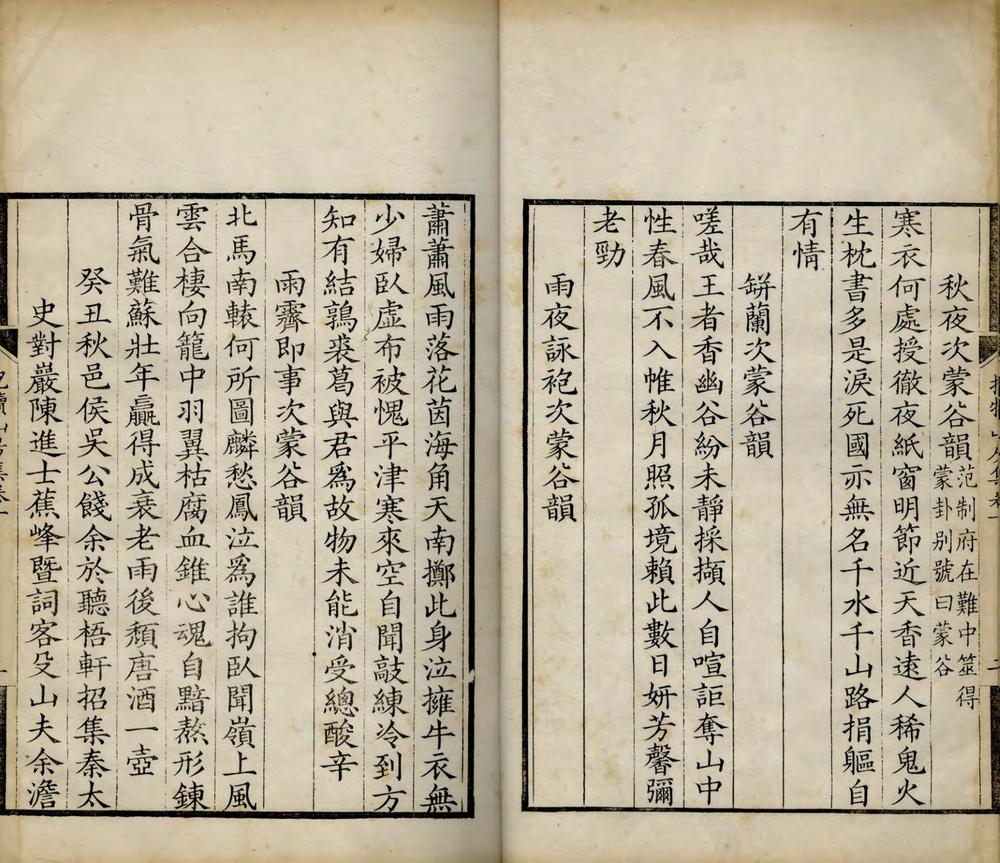 秋夜次蒙谷韻范制府在難中筮得
蒙卦别號曰蒙谷
寒衣何處授徹夜紙窗明節近天香遠人稀鬼火
生枕書多是淚死國亦無名千水千山路捐軀自
有情
缾蘭次蒙谷韻
嗟哉王者香幽谷紛未靜採擷人自喧詎奪山中
性春風不入帷秋月照孤境賴此數日妍芳馨彌
老勁
雨夜詠袍次蒙谷韻
蕭蕭風雨落花茵海角天南擲此身泣擁牛衣無
少婦臥虛布被愧平津寒來空自聞敲練冷到方
知有結鶉裘葛與君爲故物未能消受總酸辛
雨霽即事次蒙谷韻
北馬南轅何所圖麟愁鳳泣爲誰拘臥聞嶺上風
雲合棲向籠中羽翼枯腐血錐心魂自黯熬形鍊
骨氣難蘇壯年贏得成衰老雨後頽唐酒一壺
癸丑秋邑侯吳公餞余於聽梧軒招集秦太
史對巖陳進士蕉峰暨詞客殳山夫余澹